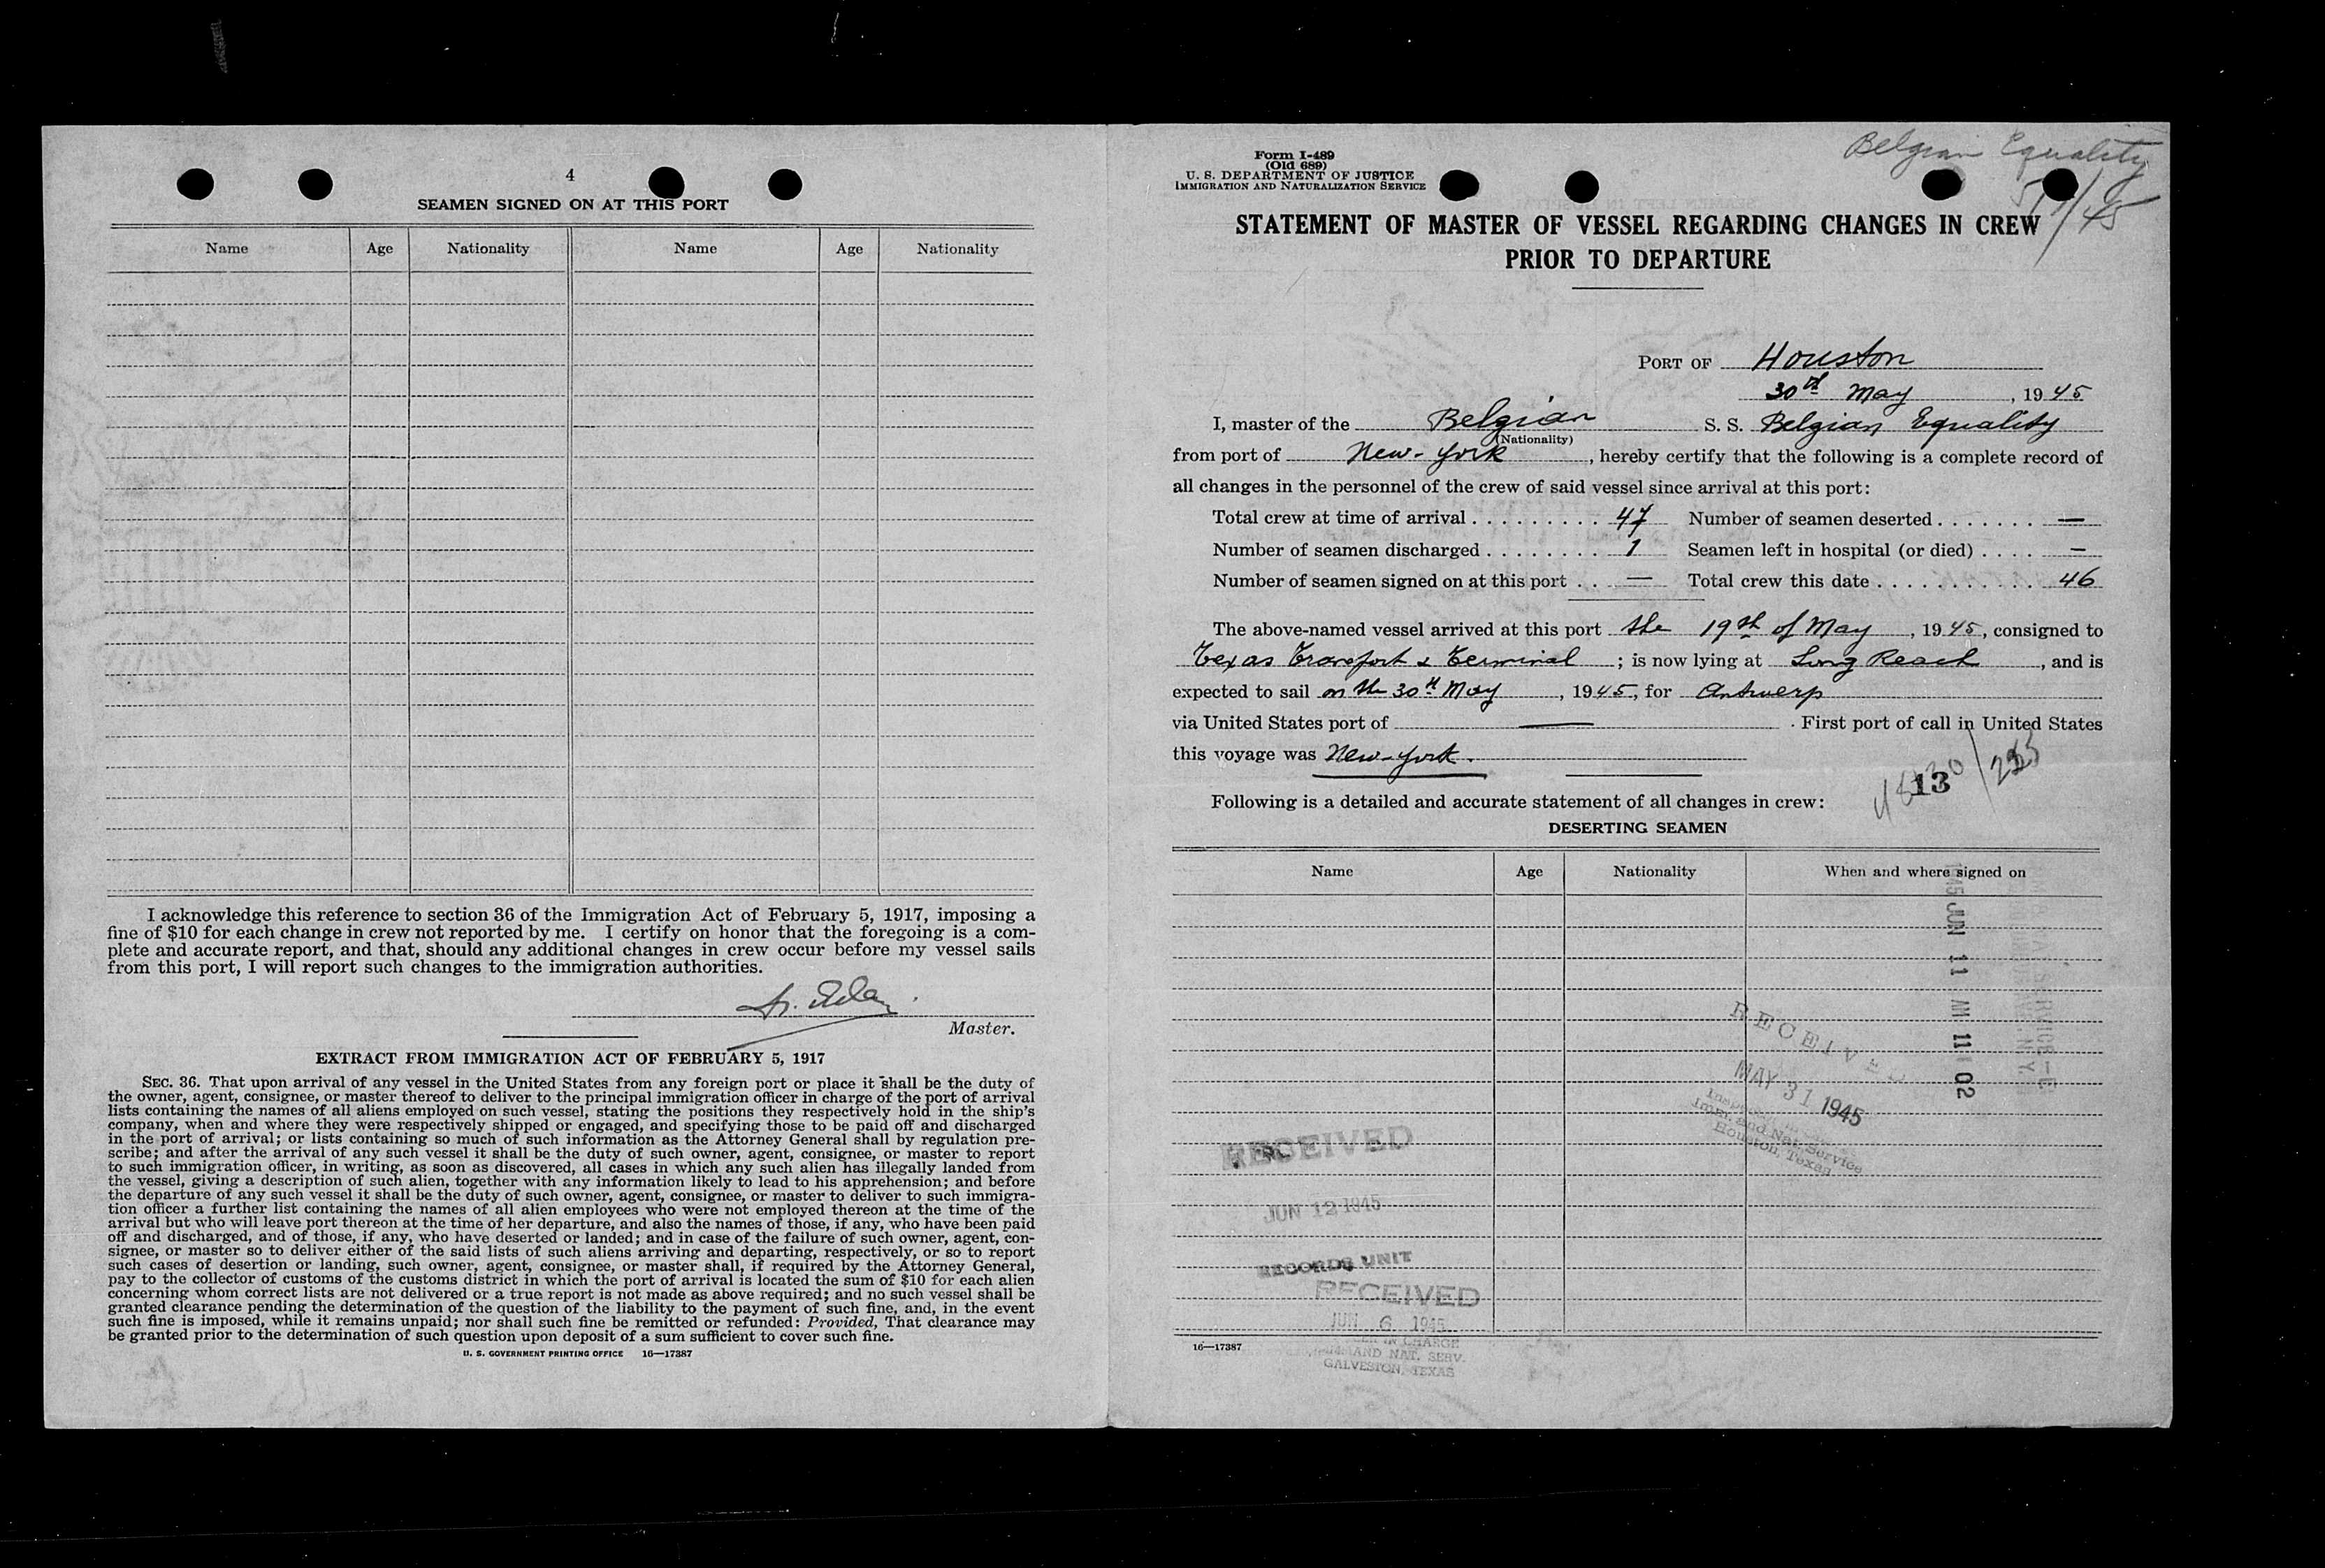 4
SEAMEN SIGNED ON AT THIS PORT
Name Age Nationality Name Age Nationality
I acknowledge this reference to section 36 of the Immigration Act of February 5, 1917, imposing a
fine of $10 for each change in crew not reported by me. I certify on honor that the foregoing is a com-
plete and accurate report, and that, should any additional changes in crew occur before my vessel sails
from this port, I will report such changes to the immigration authorities.
Master.
EXTRACT FROM IMMIGRATION ACT OF FEBRUARY 5, 1917
SEC. 36. That upon arrival of any vessel in the United States from any foreign port or place it shall be the duty of
the owner, agent, consignee, or master thereof to deliver to the principal immigration officer in charge of the port of arrival
lists containing the names of all aliens employed on such vessel, stating the positions they respectively hold in the ship's
company, when and where they were respectively shipped or engaged, and specifying those to be paid off and discharged
in the port of arrival; or lists containing so much of such information as the Attorney General shall by regulation pre-
scribe; and after the arrival of any such vessel it shall be the duty of such owner, agent, consignee, or master to report
to such immigration officer, in writing, as soon as discovered, all cases in which any such alien has illegally landed from
the vessel, giving a description of such alien, together with any information likely to lead to his apprehension; and before
the departure of any such vessel it shall be the duty of such owner, agent, consignee, or master to deliver to such immigra-
tion officer a further list containing the names of all alien employees who were not employed thereon at the time of the
arrival but who will leave port thereon at the time of her departure, and also the names of those, if any, who have been paid
off and discharged, and of those, if any, who have deserted or landed; and in case of the failure of such owner, agent, con-
signee, or master so to deliver either of the said lists of such aliens arriving and departing, respectively, or so to report
such cases of desertion or landing, such owner, agent, consignee, or master shall, if required by the Attorney General,
pay to the collector of customs of the customs district in which the port of arrival is located the sum of $10 for each alien
concerning whom correct lists are not delivered or a true report is not made as above required; and no such vessel shall be
granted clearance pending the determination of the question of the liability to the payment of such fine, and, in the event
such fine is imposed, while it remains unpaid; nor shall such fine be remitted or refunded: Provided, That clearance may
be granted prior to the determination of such question upon deposit of a sum sufficient to cover such fine.
U. S. GOVERNMENT PRINTING OFFICE 16—17387
Belgian Equality
Form I-489
(Old 689)
U. S. DEPARTMENT OF JUSTICE
IMMIGRATION AND NATURALIZATION SERVICE
STATEMENT OF MASTER OF VESSEL REGARDING CHANGES IN CREW
PRIOR TO DEPARTURE
PORT OF Houston
30th May, 1945
I, master of the Belgian S. S. Belgian Equality
(Nationality)
from port of New-York, hereby certify that the following is a complete record of
all changes in the personnel of the crew of said vessel since arrival at this port:
Total crew at time of arrival . . . . . . . . . 47 Number of seamen deserted . . . . . . . —
Number of seamen discharged . . . . . . . . 1 Seamen left in hospital (or died) . . . . —
Number of seamen signed on at this port . . — Total crew this date . . . . . . . . . . . 46
The above-named vessel arrived at this port the 19th of May, 1945, consigned to
Texas Transport & Terminal; is now lying at Long Reach, and is
expected to sail on the 30th May, 1945, for Antwerp
via United States port of — . First port of call in United States
this voyage was New-York.
13
Following is a detailed and accurate statement of all changes in crew:
DESERTING SEAMEN
Name Age Nationality When and where signed on
1945 JUN 11 AM 11 02
RECEIVED
MAY 31 1945
Imm. and Nat. Service
Houston, Texas
RECEIVED
JUN 12 1945
RECORDS UNIT
RECEIVED
JUN 6 1945
IN CHARGE
AND NAT. SERV.
GALVESTON, TEXAS
16—17387